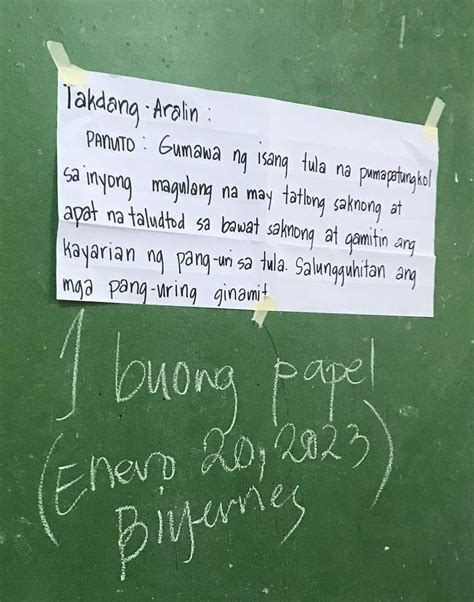 Takdang-Aralin :
PANUTO : Gumawa ng isang tula na pumapatungkol
sa inyong magulang na may tatlong saknong at
apat na taludtod sa bawat saknong at gamitin ang
kayarian ng pang-uri sa tula. Salungguhitan ang
mga pang-uring ginamit
1 buong papel
(Enero 20, 2023)
Biyernes